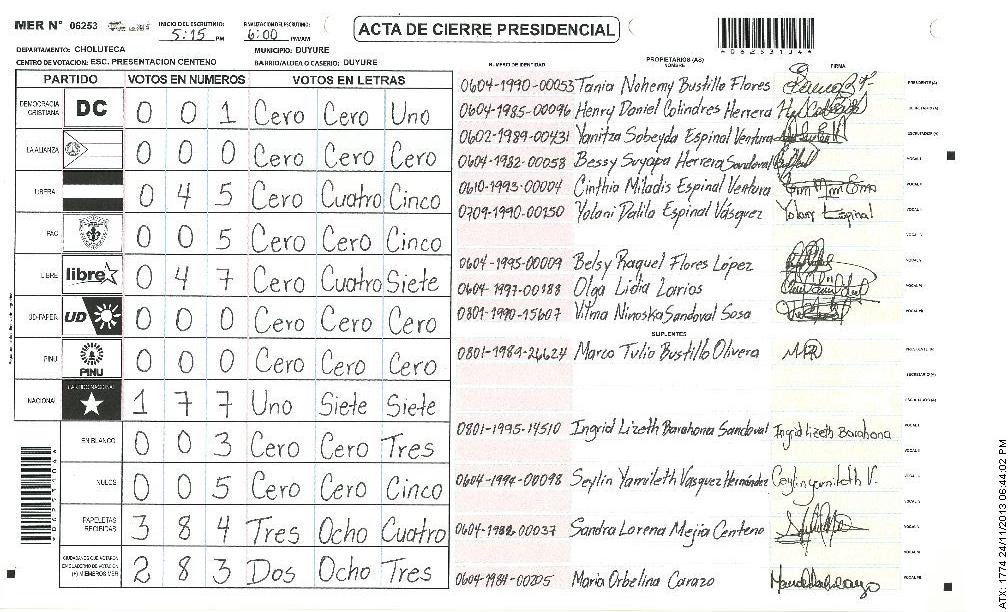 MER N° 06253
INICIO DEL ESCRUTINIO:
5:15 PM
FINALIZACION DEL ESCRUTINIO:
6:00 PM/AM
ACTA DE CIERRE PRESIDENCIAL
DEPARTAMENTO: CHOLUTECA
MUNICIPIO: DUYURE
CENTRO DE VOTACION: ESC. PRESENTACION CENTENO
BARRIO/ALDEA O CASERIO: DUYURE
PARTIDO VOTOS EN NUMEROS VOTOS EN LETRAS
DEMOCRACIA CRISTIANA DC 0 0 1 Cero Cero Uno
LA ALIANZA 0 0 0 Cero Cero Cero
LIBERAL 0 4 5 Cero Cuatro Cinco
PAC 0 0 5 Cero Cero Cinco
LIBRE libre 0 4 7 Cero Cuatro Siete
UD-FAPER UD 0 0 0 Cero Cero Cero
PINU PINU 0 0 0 Cero Cero Cero
NACIONAL PARTIDO NACIONAL 1 7 7 Uno Siete Siete
EN BLANCO 0 0 3 Cero Cero Tres
NULOS 0 0 5 Cero Cero Cinco
PAPELETAS RECIBIDAS 3 8 4 Tres Ocho Cuatro
CIUDADANOS QUE VOTARON EN CUADERNO DE VOTACION (+) MIEMBROS MER 2 8 3 Dos Ocho Tres
PROPIETARIOS (AS)
NUMERO DE IDENTIDAD NOMBRE FIRMA
0604-1990-00053 Tania Nohemy Bustillo Flores PRESIDENTE (A)
0604-1985-00096 Henry Daniel Colindres Herrera SECRETARIO (A)
0602-1989-00431 Yanitza Sobeyda Espinal Ventura ESCRUTADOR (A)
0604-1982-00058 Bessy Suyapa Herrera Sandoval VOCAL I
0610-1993-00004 Cinthia Miladis Espinal Ventura VOCAL II
0709-1990-00150 Yolani Dalila Espinal Vásquez Yolany Espinal
0604-1995-00009 Belsy Raquel Flores López
0604-1997-00188 Olga Lidia Larios
0801-1990-15607 Vilma Ninoska Sandoval Sosa
SUPLENTES
0801-1989-26624 Marco Tulio Bustillo Olivera PRESIDENTE (A)
SECRETARIO (A)
ESCRUTADOR (A)
0801-1995-14510 Ingrid Lizeth Barahona Sandoval Ingrid Lizeth Barahona
0604-1994-00098 Seylin Yamileth Vasquez Hernández
0604-1982-00037 Sandra Lorena Mejia Centeno
0604-1984-00205 Maria Orbelina Carazo
ATX: 1774 24/11/2013 06:44:02 PM